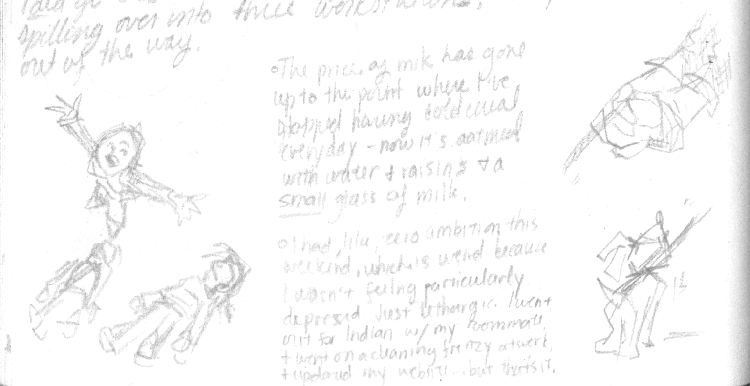 spilling over into their workstations,
out of the way.
○The price of milk has gone
up to the point where I've
stopped having cold cereal
everyday - now it's oatmeal
with water + raisins + a
small glass of milk.
○I had, like, zero ambition this
weekend, which is weird because
I wasn't feeling particularly
depressed. Just lethargic. I went
out for Indian w/ my roommate,
+ went on a cleaning frenzy at work,
+ updated my website... but that's it.